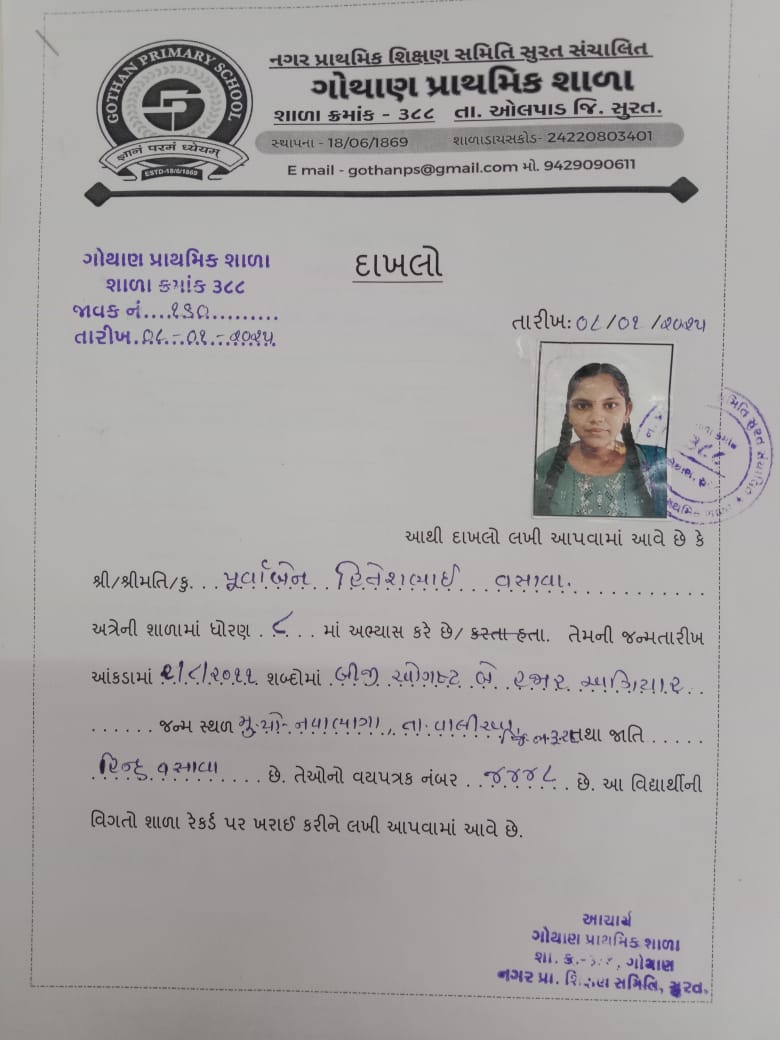 GOTHAN PRIMARY SCHOOL
ज्ञानं परमं ध्येयम्
ESTD-18/6/1869
નગર પ્રાથમિક શિક્ષણ સમિતિ સુરત સંચાલિત
ગોથાણ પ્રાથમિક શાળા
શાળા ક્રમાંક - ૩૮૮ તા. ઓલપાડ જિ. સુરત.
સ્થાપના - 18/06/1869 શાળાડાયસકોડ- 24220803401
E mail - gothanps@gmail.com મો. 9429090611
ગોથાણ પ્રાથમિક શાળા
શાળા ક્રમાંક ૩૮૮
જાવક નં....૧૩૦.........
તારીખ.૦૮-૦૧-૨૦૨૫
દાખલો
તારીખ: ૦૮/૦૧/૨૦૨૫
૩૮૮
આથી દાખલો લખી આપવામાં આવે છે કે
શ્રી/શ્રીમતિ/કુ. . . પૂર્વાબેન હિતેશભાઈ વસાવા.
અત્રેની શાળામાં ધોરણ . ૮. . . માં અભ્યાસ કરે છે/ કરતા હતા. તેમની જન્મતારીખ
આંકડામાં ૨/૮/૨૦૧૧ શબ્દોમાં બીજી ઓગષ્ટ બે હજાર અગિયાર . .
. . . . . . જન્મ સ્થળ મુ.પો-નવાભાગા, તા- તથા જાતિ . . . . .
હિન્દુ વસાવા . . . . છે. તેઓનો વયપત્રક નંબર . . ૪૪૪૮ . . છે. આ વિદ્યાર્થીની
વિગતો શાળા રેકર્ડ પર ખરાઈ કરીને લખી આપવામાં આવે છે.
આચાર્ય
ગોથાણ પ્રાથમિક શાળા
શા. ક્ર.- ગોથાણ
નગર પ્રા. શિક્ષણ સમિતિ, સુરત.